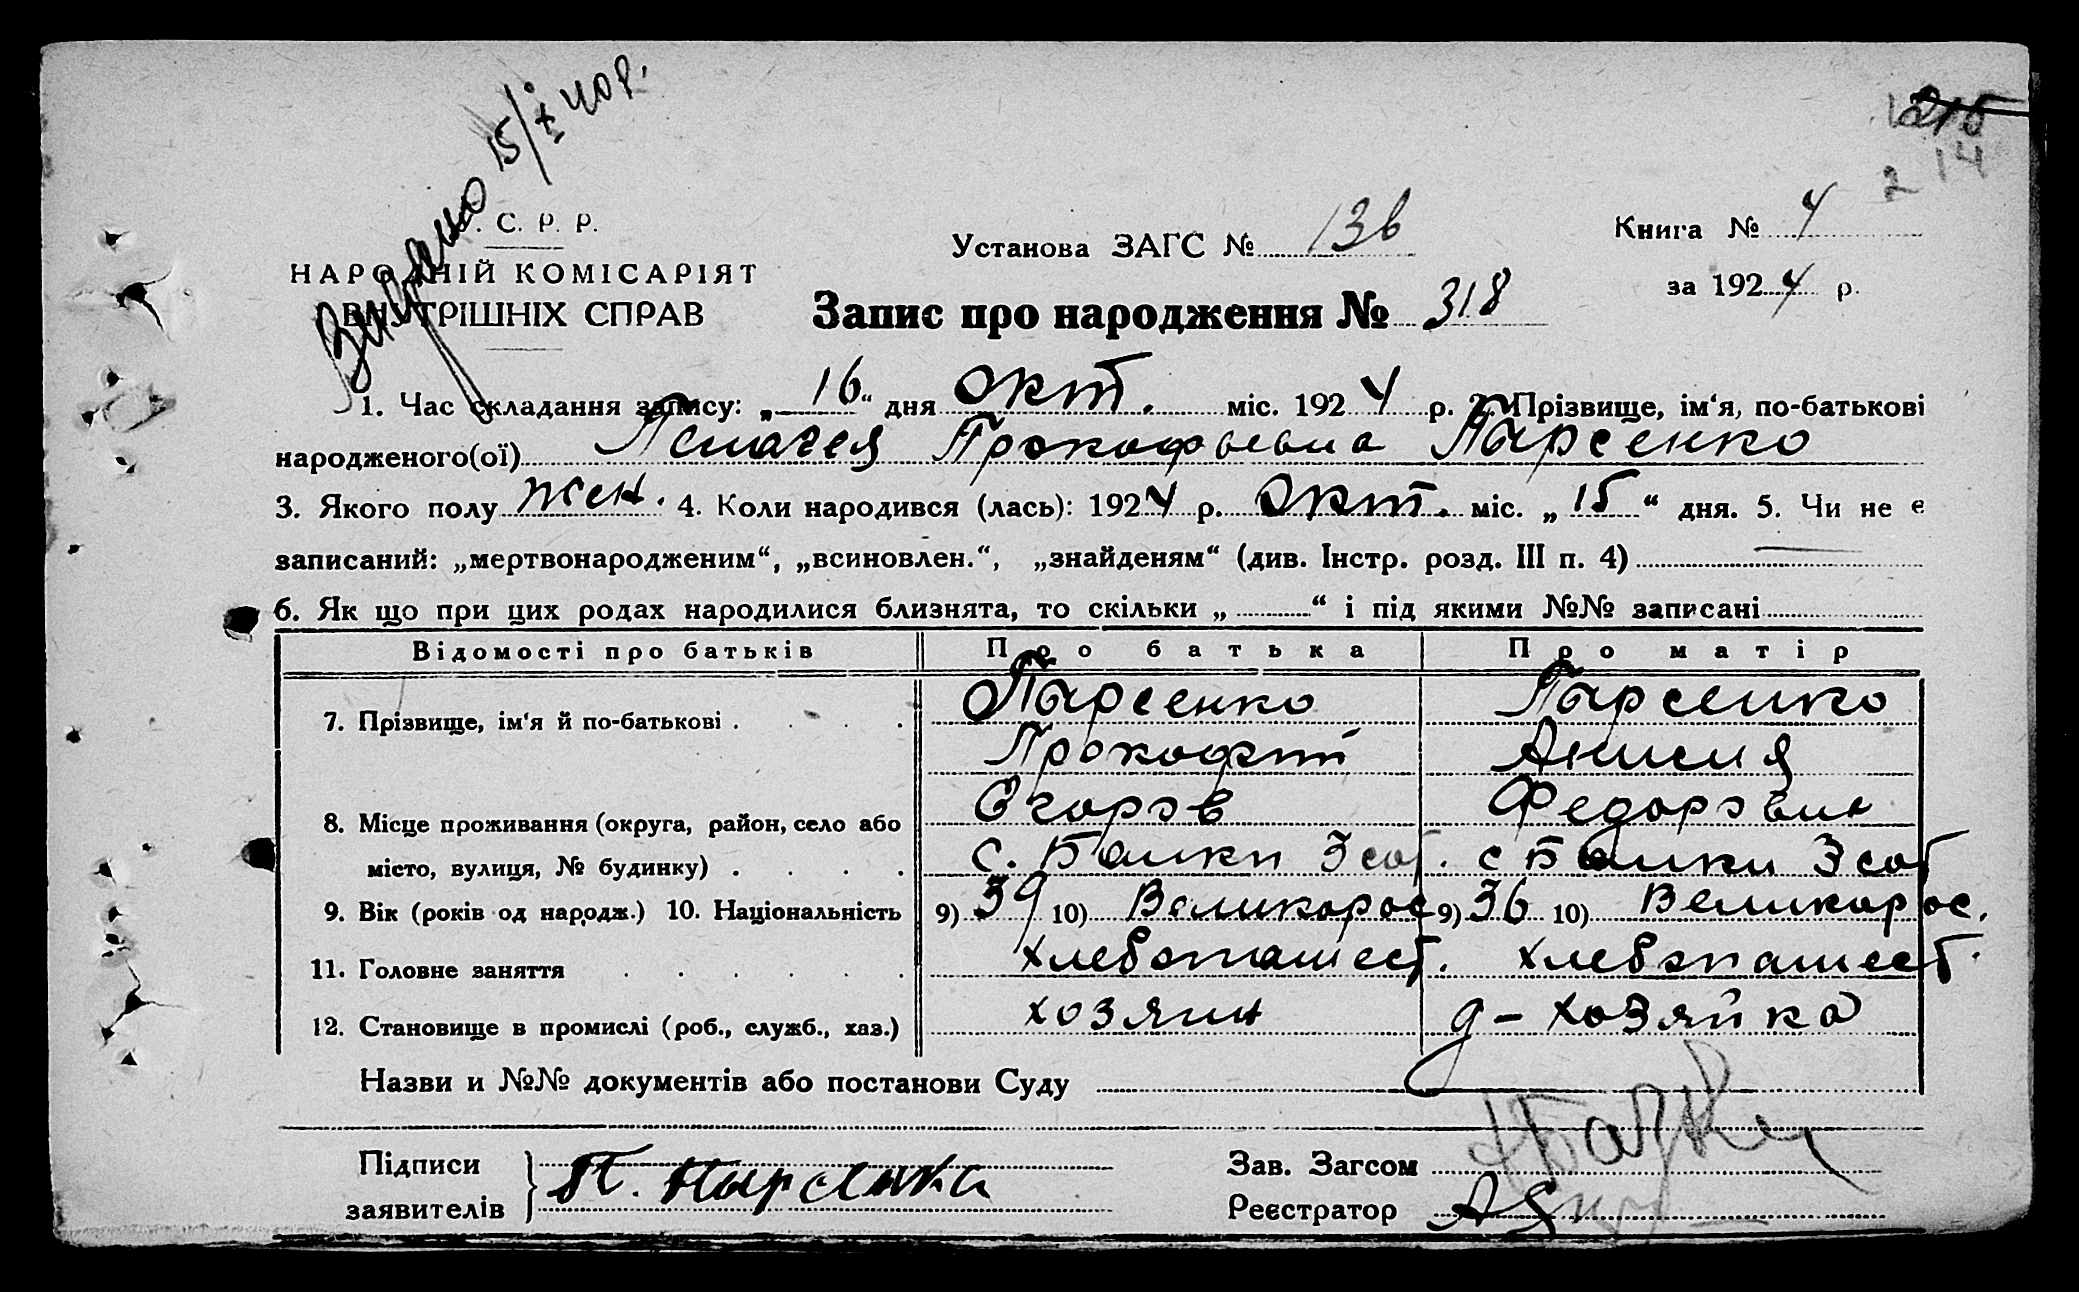 Видано 15/X 40 р.
14
2
С. Р. Р.
НАРОДНІЙ КОМІСАРІЯТ
ВНУТРІШНІХ СПРАВ
Установа ЗАГС № 136
Книга № 4
за 1924 р.
Запис про народження № 318
1. Час складання запису: „16“ дня Окт. міс. 1924 р. 2. Прізвище, ім‘я, по-батькові
народженого(ої) Пелагея Прокофьевна Пырсенко
3. Якого полу жен. 4. Коли народився (лась): 1924 р. Окт. міс. „15“ дня. 5. Чи не є
записаний: „мертвонародженим“, „всиновлен.“, „знайденям“ (див. Інстр. розд. III п. 4)
6. Як що при цих родах народилися близнята, то скільки „ “ і під якими №№ записані
Відомості про батьків Про батька Про матір
7. Прізвище, ім‘я й по-батькові . . . . Пырсенко Пырсенко
Прокофий Анисия
Егоров Федоровна
8. Місце проживання (округа, район, село або
місто, вулиця, № будинку) . . . . с. Балки 3 сот. с Балки 3 сот
9. Вік (років од народж.) 10. Національність 9) 39 10) Великорос 9) 36 10) Великорос.
11. Головне заняття . . . . . . хлебопашест. хлебопашест.
12. Становище в промислі (роб., служб., хаз.) хозяин д-хозяйка
Назви и №№ документів або постанови Суду
Підписи
заявителів П. Пырсенка
Зав. Загсом
Реєстратор